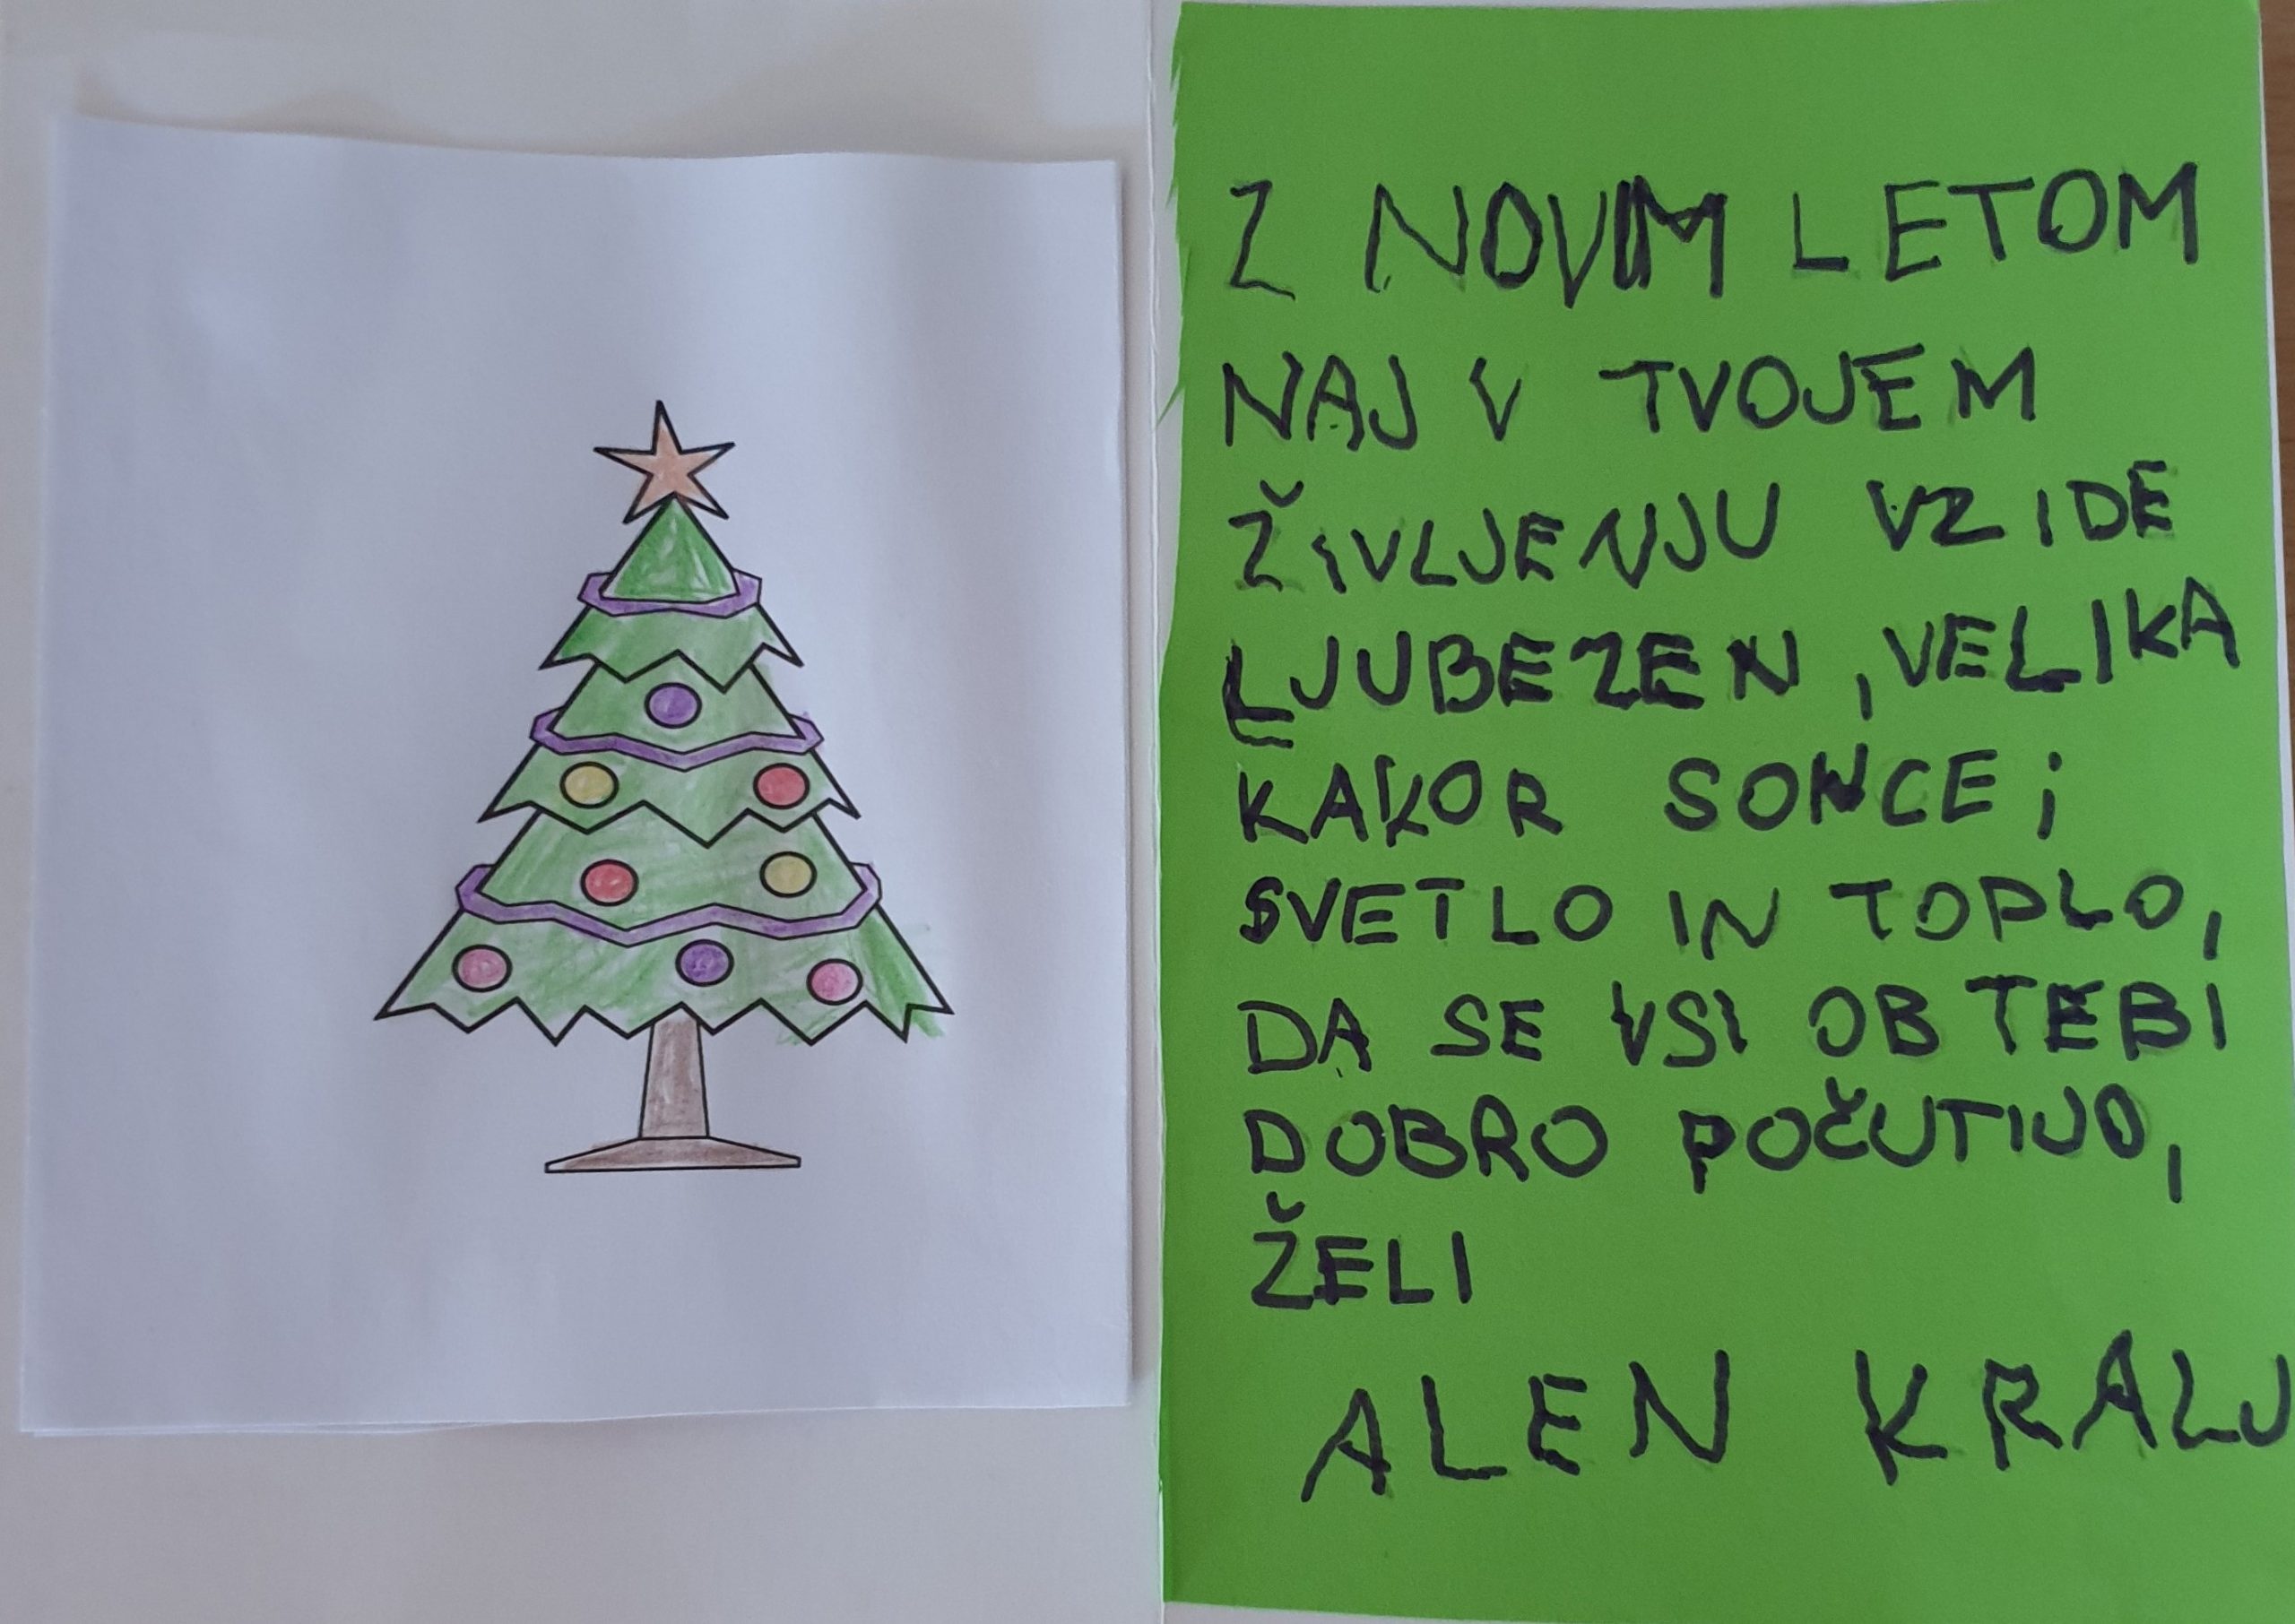 Z NOVIM LETOM
NAJ V TVOJEM
ŽIVLJENJU VZIDE
LJUBEZEN, VELIKA
KAKOR SONCE;
SVETLO IN TOPLO,
DA SE VSI OB TEBI
DOBRO POČUTIJO,
ŽELI
ALEN KRALJ